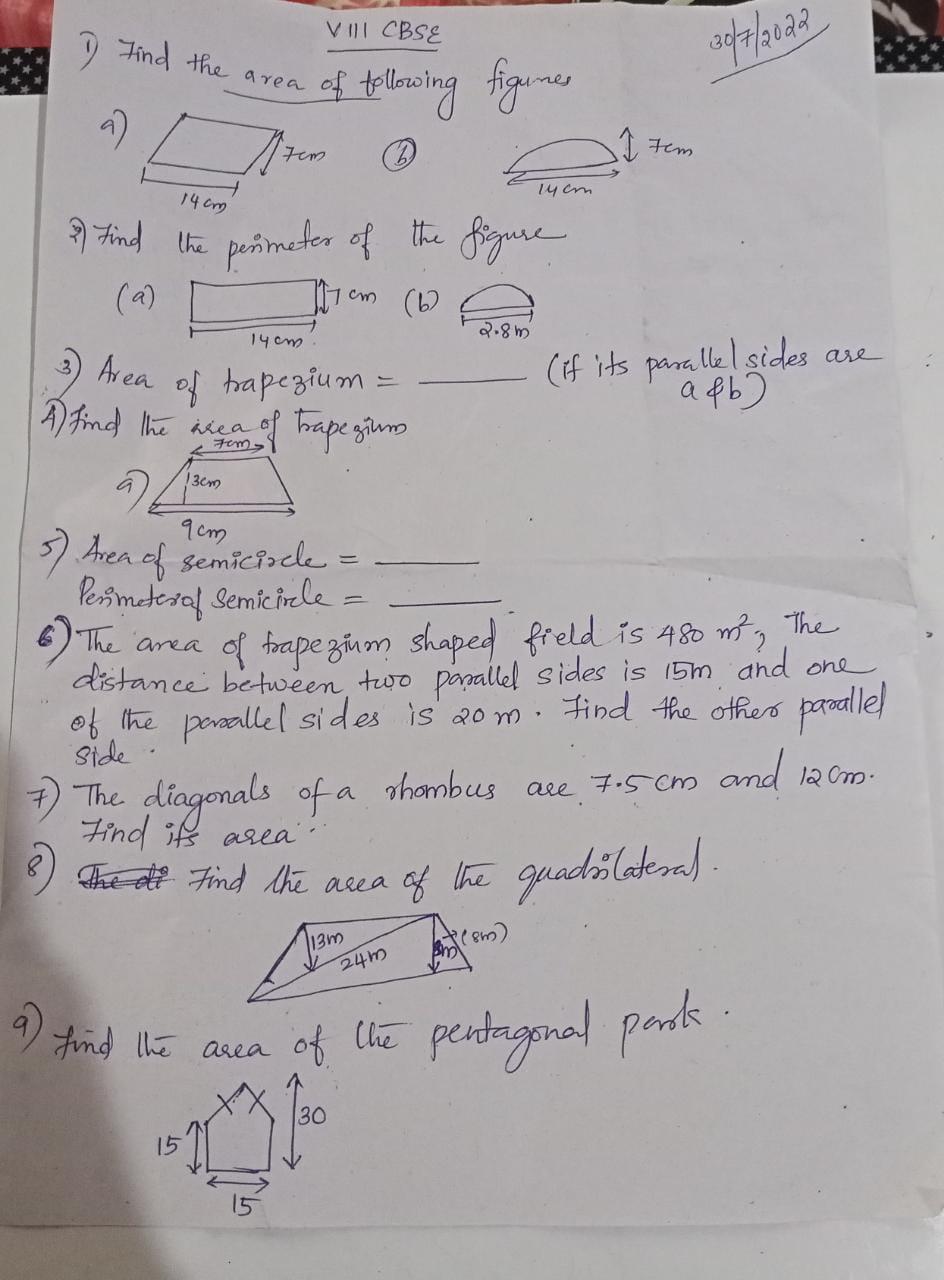 VIII CBSE
30/7/2022
1) Find the area of following figures
a) 7cm 14cm (b) 7cm 14cm
2) Find the perimeter of the figure
(a) 7cm 14cm (b) 2.8m
3) Area of trapezium = ______ (if its parallel sides are
a & b)
4) Find the area of trapezium
a) 7cm 3cm 9cm
5) Area of semicircle = ______
Perimeter of semicircle = ______
6) The area of trapezium shaped field is 480 m², The
distance between two parallel sides is 15m and one
of the parallel sides is 20m. Find the other parallel
side.
7) The diagonals of a rhombus are 7.5cm and 12cm.
Find its area.
8) Find the area of the quadrilateral.
13m 24m (8m)
9) Find the area of the pentagonal park.
30
15
15